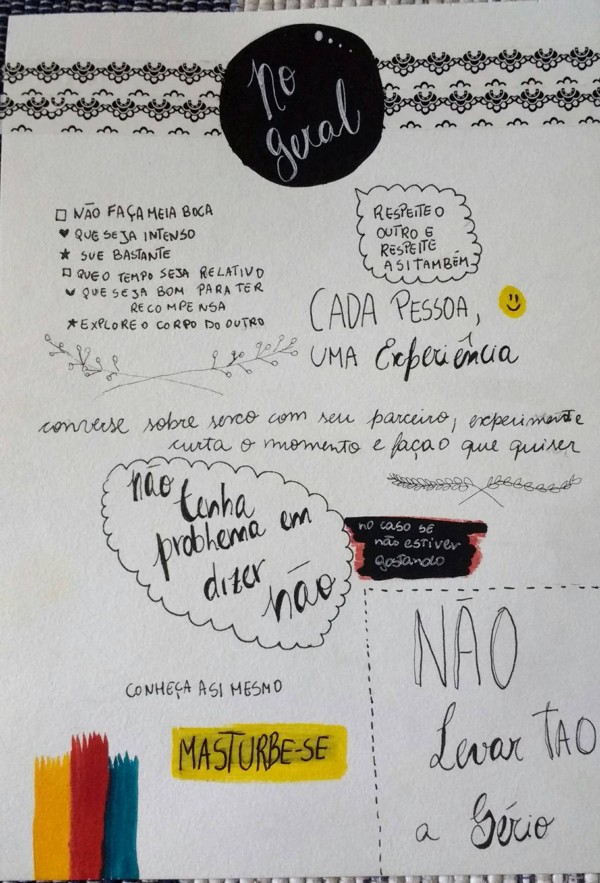 No
geral
NÃO FAÇA MEIA BOCA
QUE SEJA INTENSO
SUE BASTANTE
QUE O TEMPO SEJA RELATIVO
QUE SEJA BOM PARA TER
RECOMPENSA
EXPLORE O CORPO DO OUTRO
RESPEITE O
OUTRO E
RESPEITE
A SI TAMBÉM
CADA PESSOA,
UMA Experiência
converse sobre sexo com seu parceiro, experimente
curta o momento e faça o que quiser
não
tenha
problema em
dizer
não
no caso se
não estiver
gostando
CONHEÇA A SI MESMO
MASTURBE-SE
NÃO
Levar TAO
a Sério